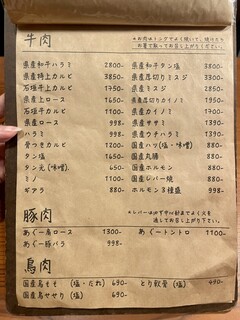 牛肉
※お肉はトングでよく焼いて、焼けたら
お箸で取ってお召し上がり下さい。
県産和牛ハラミ 2800-
県産和牛タン塩 3000-
県産特上カルビ 3850-
県産厚切りミスジ 3300-
石垣牛上カルビ 1750-
県産ミスジ 2850-
県産上ロース 1650-
県産厚切りカイノミ 1950-
石垣牛カルビ 1100-
県産カイノミ 1750-
県産ロース 998-
県産ササミ 1390-
ハラミ 998-
県産ウチハラミ 1390-
骨つきカルビ 1200-
国産ハツ(塩・味噌) 880-
タン塩 1650-
国産丸腸 880-
タン元(味噌) 650-
国産ホルモン 880-
ミノ 1100-
国産レバー焼 880-
ギアラ 880-
ホルモン3種盛 998-
豚肉
※レバーは必ず中心部までよく火を
通してお召し上がり下さい。
あぐー肩ロース 1300-
あぐートントロ 1100-
あぐー豚バラ 998-
鳥肉
国産鳥もも(塩・だれ) 690-
とり軟骨(塩) 490-
国産鳥セセリ(塩) 690-